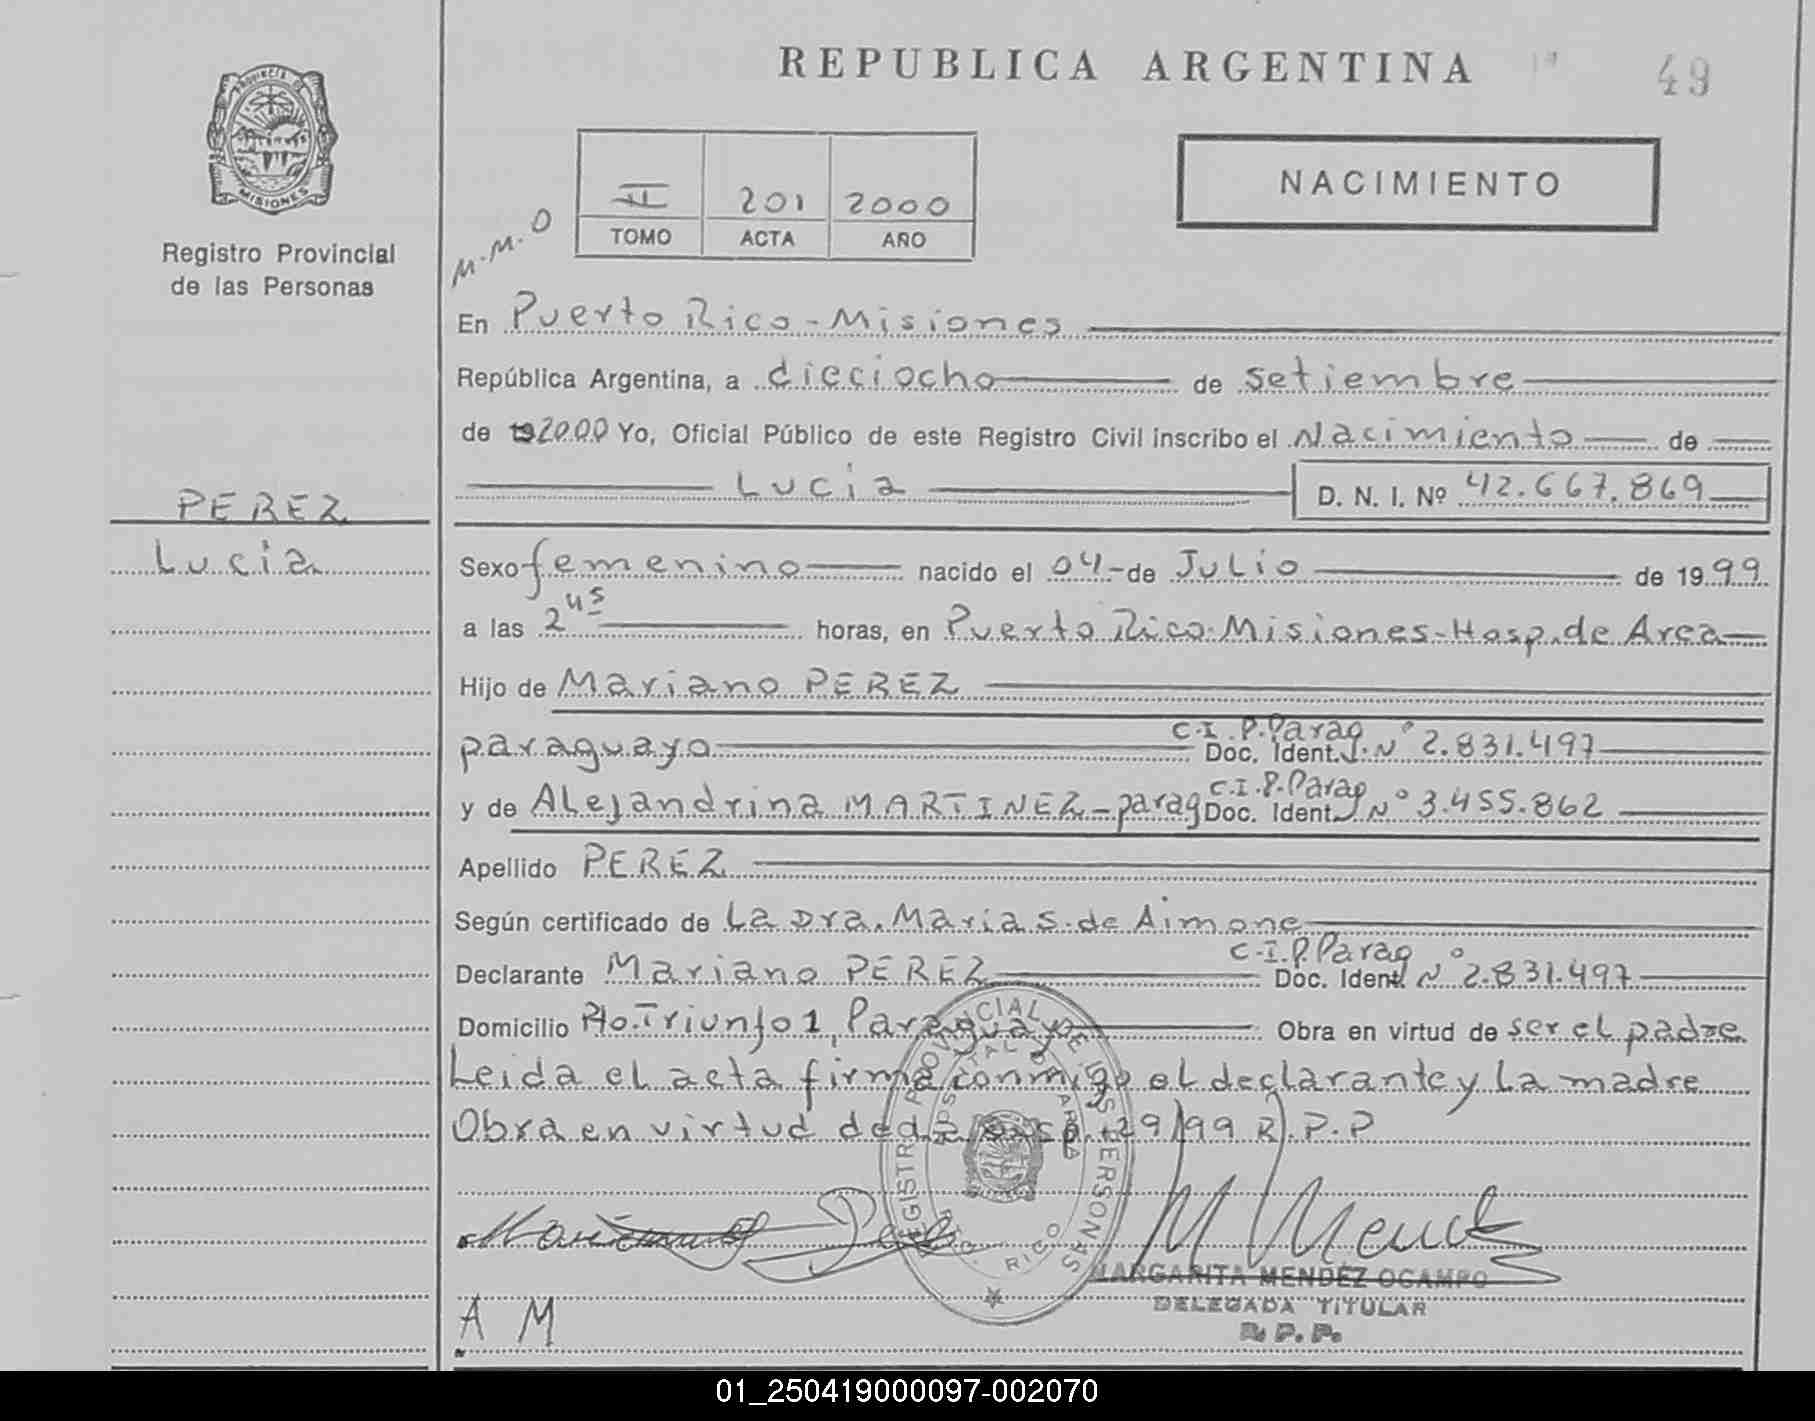 REPUBLICA ARGENTINA
49
PROVINCIA DE MISIONES
Registro Provincial
de las Personas
II 201 2000
TOMO ACTA AÑO
NACIMIENTO
M.M.O
En Puerto Rico - Misiones
República Argentina, a dieciocho de setiembre
de 19 2000 Yo, Oficial Público de este Registro Civil inscribo el Nacimiento de
Lucia D. N. I. Nº 42.667.869
PEREZ
Lucia
Sexo femenino nacido el 04-de Julio de 1999
a las 2 45 horas, en Puerto Rico-Misiones-Hosp.de Area
Hijo de Mariano PEREZ
paraguayo C.I.P.Parag Doc. Ident. Nº 2.831.497
y de Alejandrina MARTINEZ-parag C.I.P.Parag Doc. Ident. Nº 3.455.862
Apellido PEREZ
Según certificado de La Dra. Maria S. de Aimone
Declarante Mariano PEREZ C.I.P.Parag Doc. Ident. Nº 2.831.497
Domicilio Pto.Triunfo 1, Paraguay Obra en virtud de ser el padre
Leida el acta firma conmigo el declarante y la madre
Obra en virtud de da 29/99 R.P.P
REGISTRO PROVINCIAL DE LAS PERSONAS
HOSPITAL DE AREA
PTO. RICO
M Mendez
MARGARITA MENDEZ OCAMPO
DELEGADA TITULAR
R. P. P.
A M
01_250419000097-002070